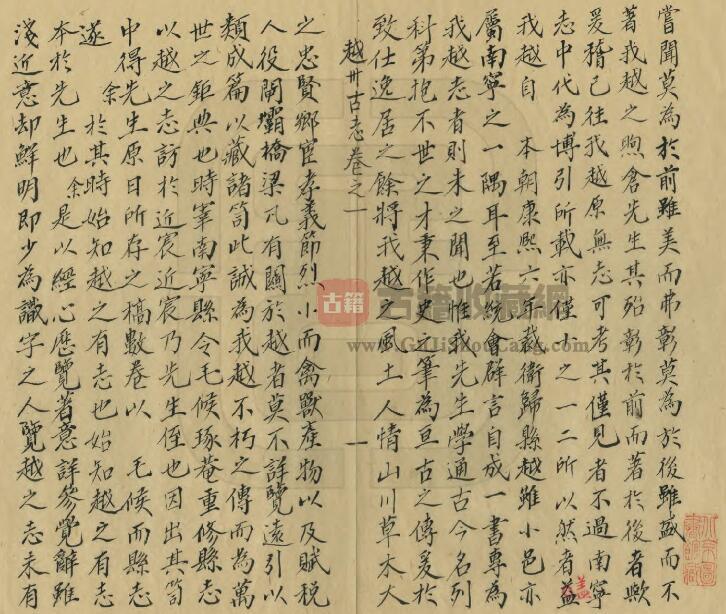 嘗聞莫為於前雖美而弗彰莫為於後雖盛而不
著我越之煦倉先生其殆彰於前而著於後者歟
爰稽已往我越原無志可考其僅見者不過南寧
志中代為博引所載亦僅十之一二所以然者益
盖
我越自 本朝康熙六年裁衛歸縣越雖小邑亦
屬南寧之一隅耳至若統會群言自成一書專為
我越志者則未之聞也惟我先生學通古今名列
科第抱不世之才秉作史之筆為亘古之傳爰於
致仕逸居之餘將我越之風土人情山川草木大
越州古志卷之一
一
之忠賢鄉宦孝義節烈小而禽獸產物以及賦稅
人役閘壩橋梁凡有關於越者莫不詳覽遠引以
類成篇以藏諸笥此誠為我越不朽之傳而為萬
世之鉅典也時宰南寧縣令毛候琢菴重修縣志
以越之志訪於近宸近宸乃先生侄也因出其笥
中得先生原日所存之槁數卷以 毛候而縣志
遂 余於其時始知越之有志也始知越之有志
本於先生也 余是以經心歷覽著意詳參覺辭雖
淺近意却鮮明即少為識字之人覽越之志未有
古籍
古籍收藏網
www.GuJiShouCang.com